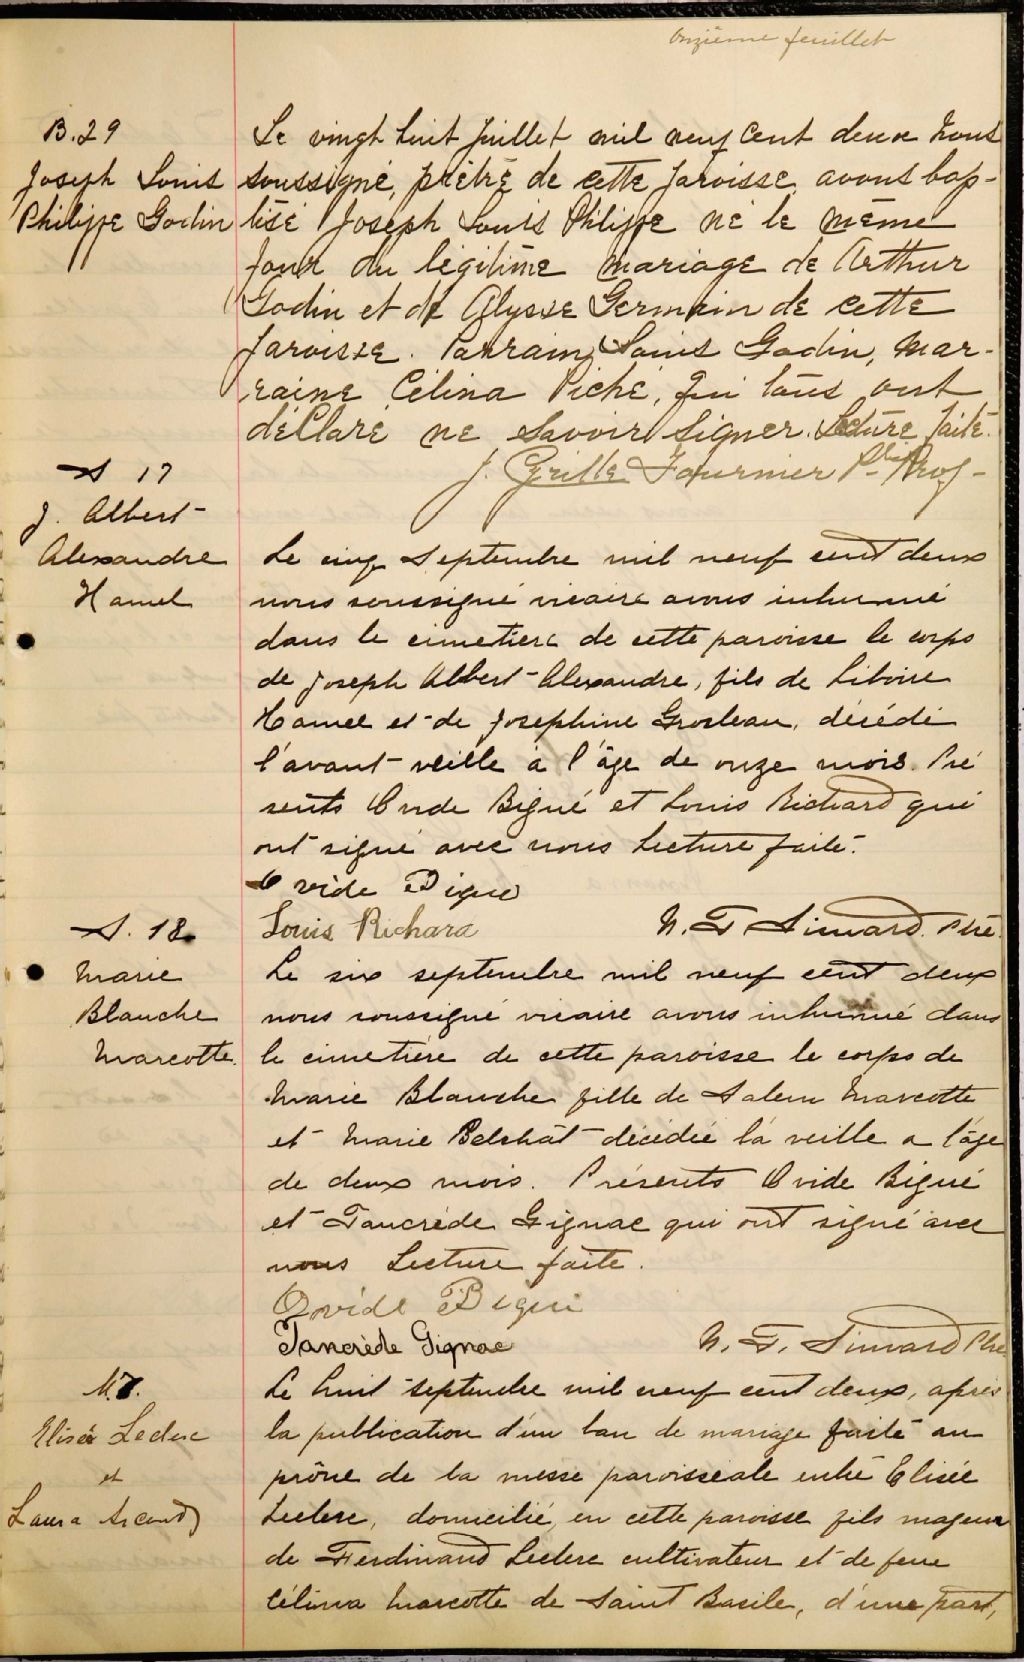 Onzième feuillet
B. 29
Joseph Louis
Philippe Godin
Le vingt huit Juillet mil neuf cent deux Nous
soussigné, prêtre de cette paroisse, avons bap-
tisé Joseph Louis Philippe né le même
jour du légitime mariage de Arthur
Godin et de Alysse Germain de cette
paroisse. Parrain, Louis Godin, mar-
raine Célina Piché, qui tous ont
déclaré ne savoir signer. Lecture faite.
J. Cyrille Fournier Ptre Prof-
S 17
J. Albert-
Alexandre
Hamel
Le cinq Septembre mil neuf cent deux
nous soussigné vicaire avons inhumé
dans le cimetière de cette paroisse le corps
de Joseph Albert-Alexandre, fils de Liboire
Hamel et de Josephine Grosleau, décédé
l'avant-veille à l'âge de onze mois. Pré
sents Ovide Bigué et Louis Richard qui
ont signé avec nous Lecture faite.
Ovide Bigué
Louis Richard
N. F. Simard Ptre.
S. 18
Marie
Blanche
Marcotte.
Le six septembre mil neuf cent deux
nous soussigné vicaire avons inhumé dans
le cimetière de cette paroisse le corps de
Marie Blanche fille de Salem Marcotte
et Marie décédée la veille a l'âge
de deux mois. Présents Ovide Bigué
et Tancrède Gignac qui ont signé avec
nous Lecture faite.
Ovide Bigué
Tancrède Gignac
N. F. Simard Ptre
M. 7.
Elisée Leclerc
et
Laura Arcand
Le huit septembre mil neuf cent deux, après
la publication d'un ban de mariage faite au
prône de la messe paroissiale entre Elisée
Leclerc, domicilié, en cette paroisse fils majeur
de Ferdinand Leclerc cultivateur et de feue
Célina Marcotte de Saint Basile, d'une part,